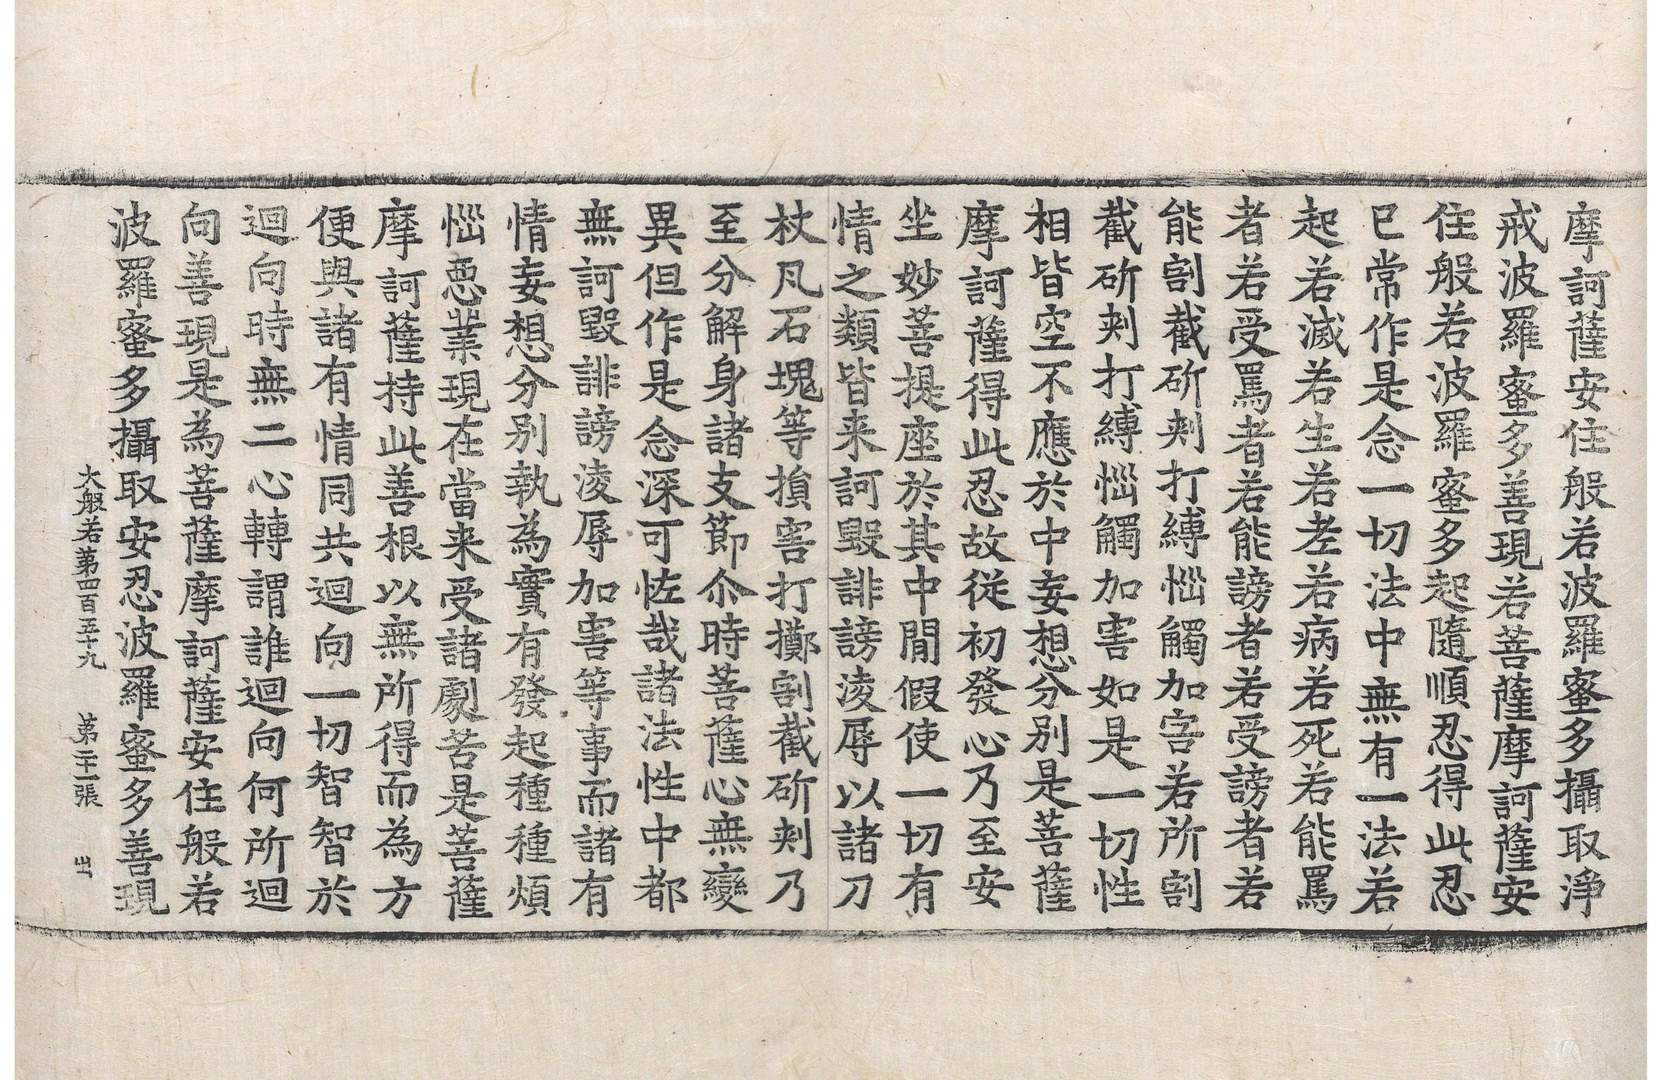 摩訶薩安住般若波羅蜜多攝取淨
戒波羅蜜多善現若菩薩摩訶薩安
住般若波羅蜜多起隨順忍得此忍
已常作是念一切法中無有一法若
起若滅若生若老若病若死若能罵
者若受罵者若能謗者若受謗者若
能割截斫刺打縛惱觸加害若所割
截斫刺打縛惱觸加害如是一切性
相皆空不應於中妄想分別是菩薩
摩訶薩得此忍故從初發心乃至安
坐妙菩提座於其中間假使一切有
情之類皆来訶毀誹謗淩辱以諸刀
杖凡石塊等損害打擲割截斫刺乃
至分解身諸支節尒時菩薩心無變
異但作是念深可恠哉諸法性中都
無訶毀誹謗淩辱加害等事而諸有
情妄想分別執為實有發起種種煩
惱惡業現在當来受諸劇苦是菩薩
摩訶薩持此善根以無所得而為方
便與諸有情同共迴向一切智智於
迴向時無二心轉謂誰迴向何所迴
向善現是為菩薩摩訶薩安住般若
波羅蜜多攝取安忍波羅蜜多善現
大般若第四百五十九 第二十一張 出